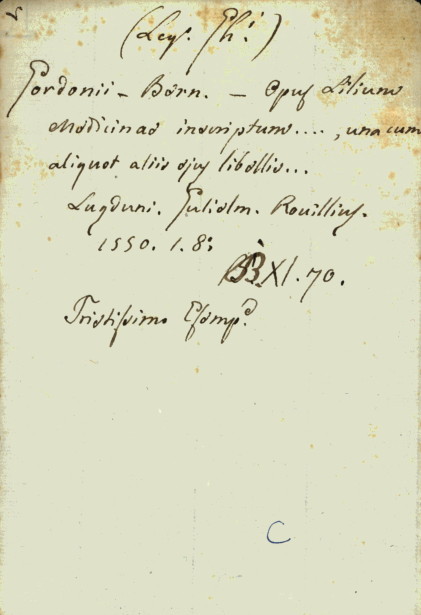 (Leg. Gh.)
Gordonii - Bern. - Opus Lilium
Medicinae inscriptum...., una cum
aliquot aliis ejus libellis...
Lugduni. Gulielm. Rouillius.
1550. 1. 8:
BB.XI.70.
Tristissimo Esemp.
C